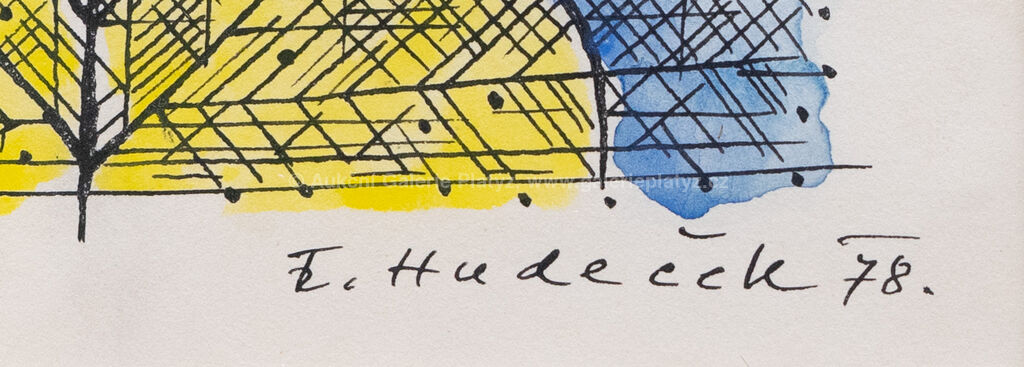 © Aukční Galerie Platýz, www.galerieplatyz.cz
F. Hudeček 78.